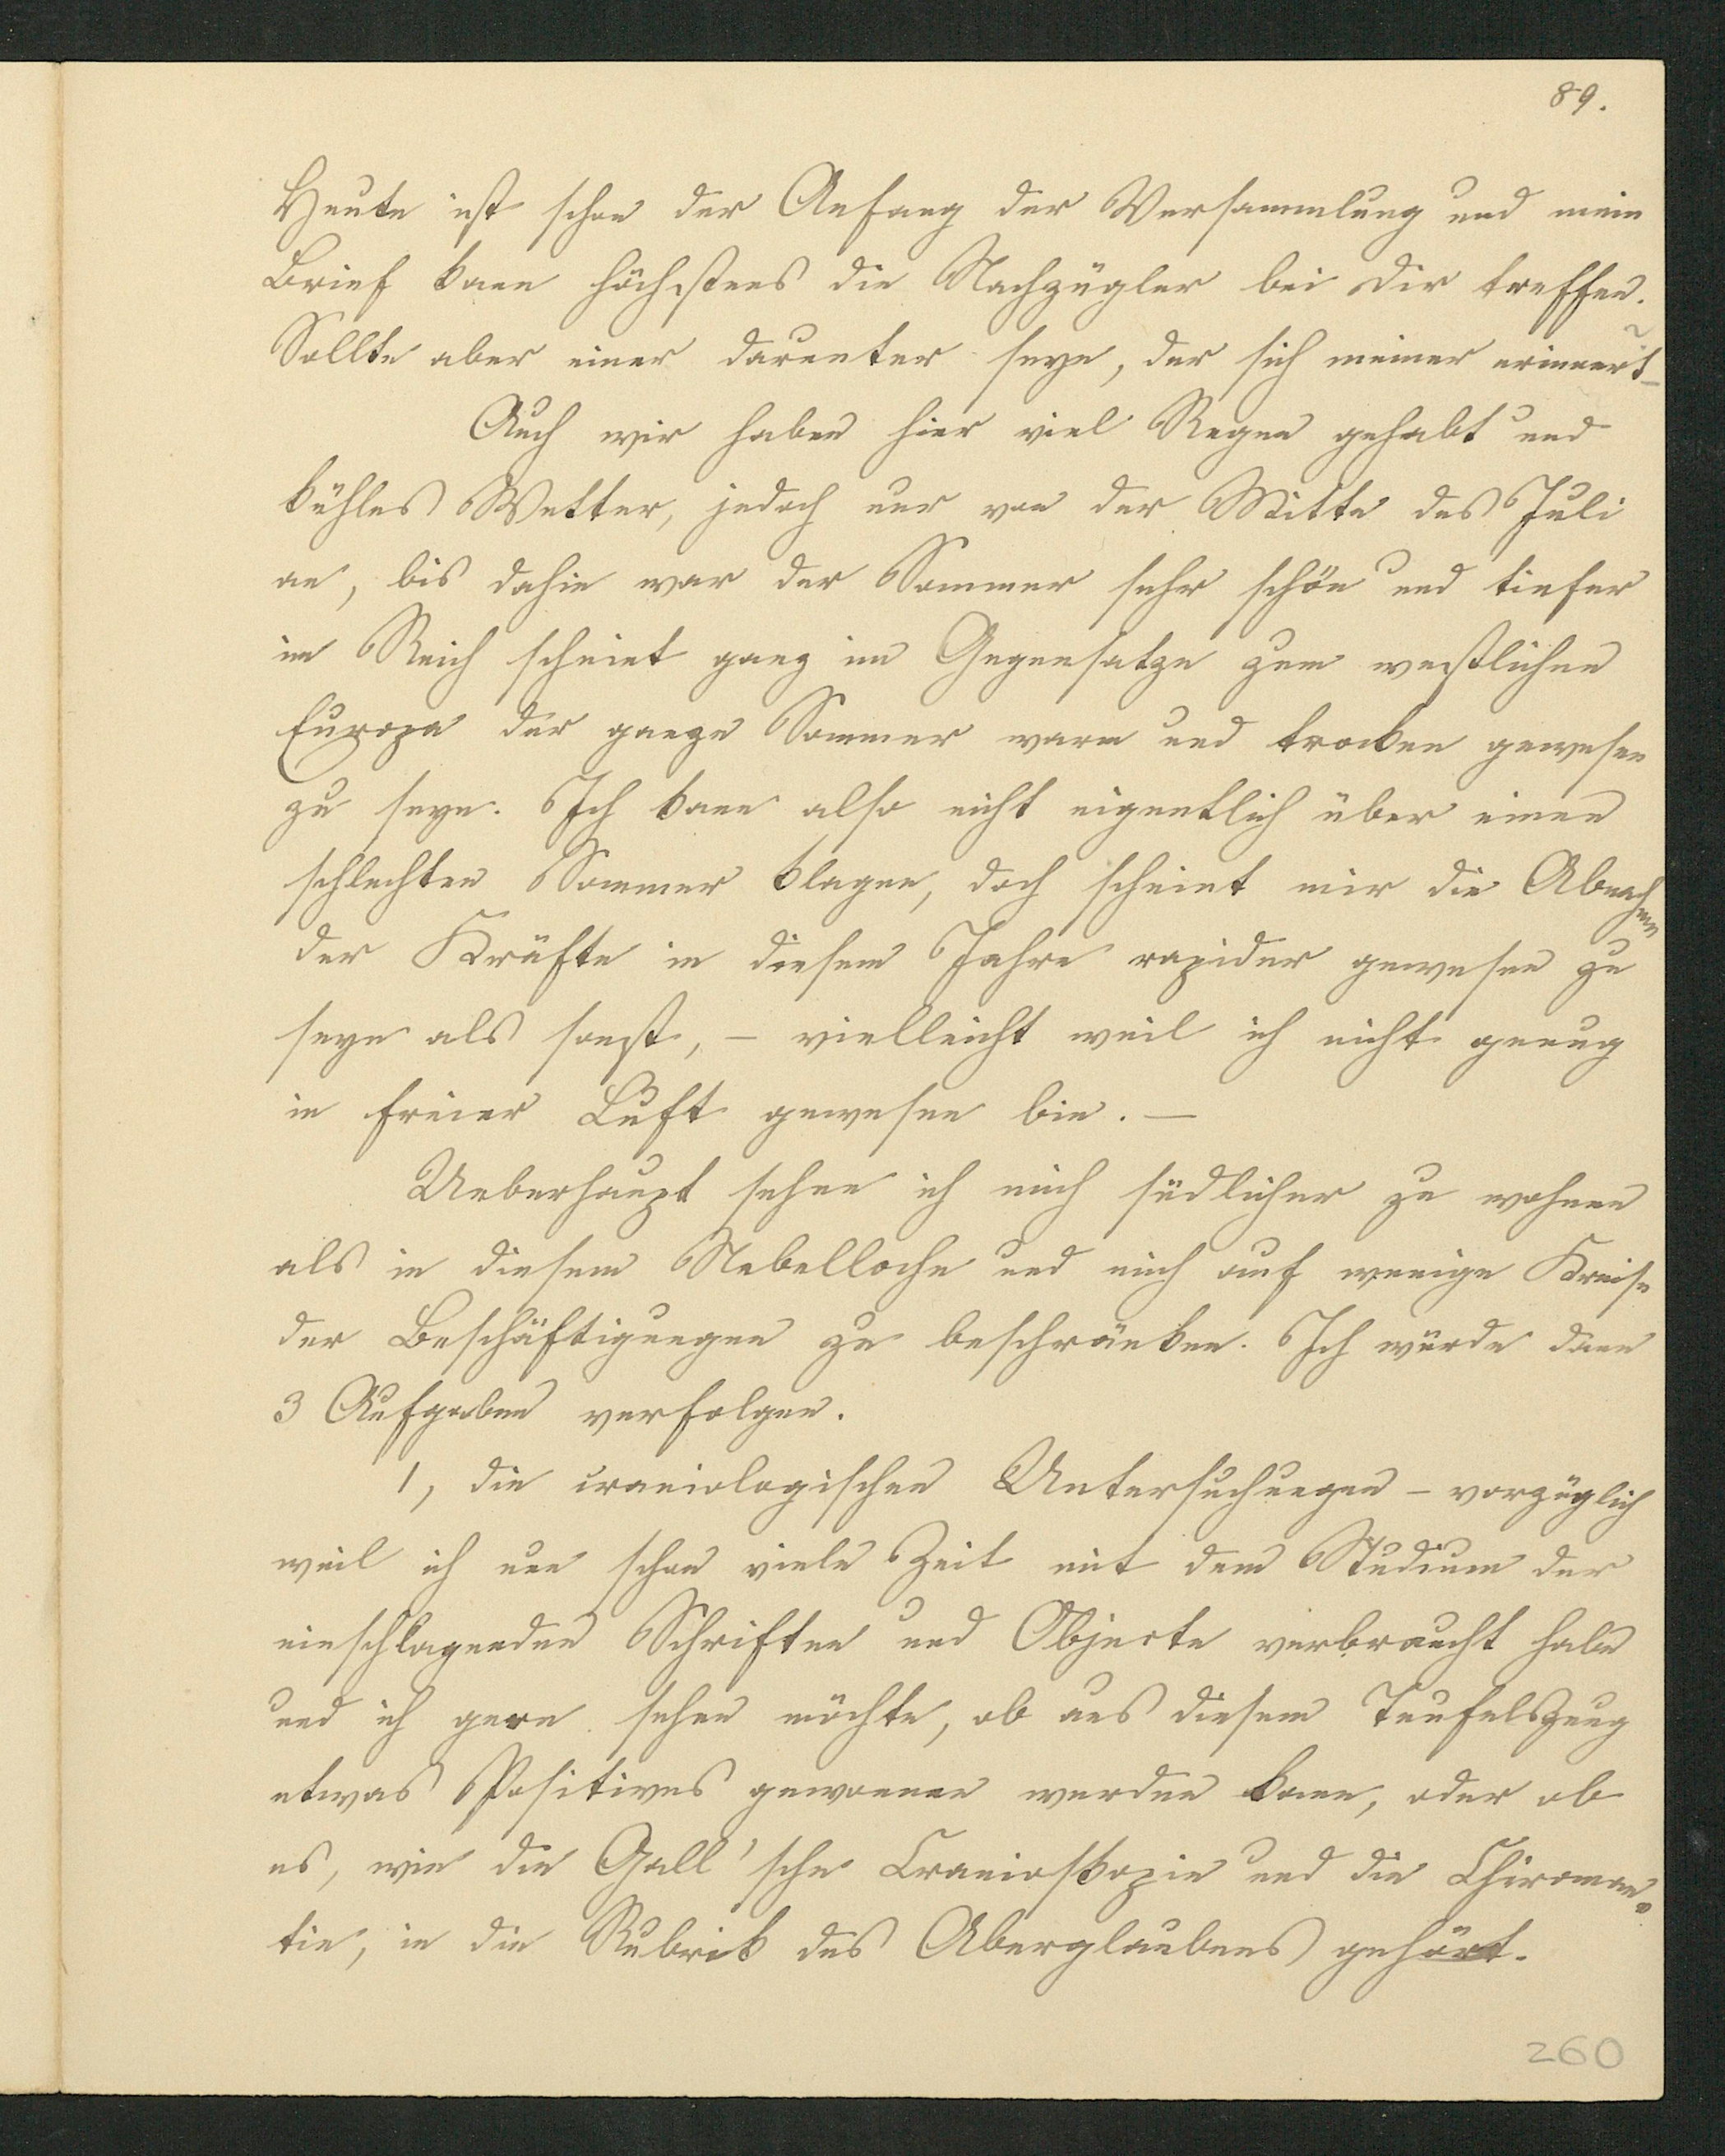 89.
Heute ist schon der Anfang der Versammlung und mein
Brief kann höchstens die Nachzügler bei Dir treffen.
Sollte aber einer darunter seyn, der sich meiner erinnert –
Auch wir haben hier viel Regen gehabt und
kühles Wetter, jedoch nur von der Mitte des Juli
an, bis dahin war der Sommer sehr schön und tiefer
im Reich scheint ganz im Gegensatze zum westlichen
Europa der ganze Sommer warm und trocken gewesen
zu seyn. Ich kann also nicht eigentlich über einen
schlechten Sommer klagen, doch scheint mir die Abnahme
der Kräfte in diesem Jahre rapider gewesen zu
seyn als sonst, – vielleicht weil ich nicht genug
in freier Luft gewesen bin. –
Ueberhaupt sehne ich mich südlicher zu wohnen
als in diesem Nebelloche und mich auf wenige Kreise
der Beschäftigungen zu beschränken. Ich würde dann
3 Aufgaben verfolgen.
1, die craniologischen Untersuchungen – vorzüglich
weil ich nun schon viele Zeit mit dem Studium der
einschlagenden Schriften und Objecte verbraucht habe
und ich gern sehen möchte, ob aus diesem Teufelszeug
etwas Positives gewonnen werden kann, oder ob
es, wie die Gall'sche Cranioskopie und die Chiroman=
tie, in die Rubrik des Aberglaubens gehört.
260